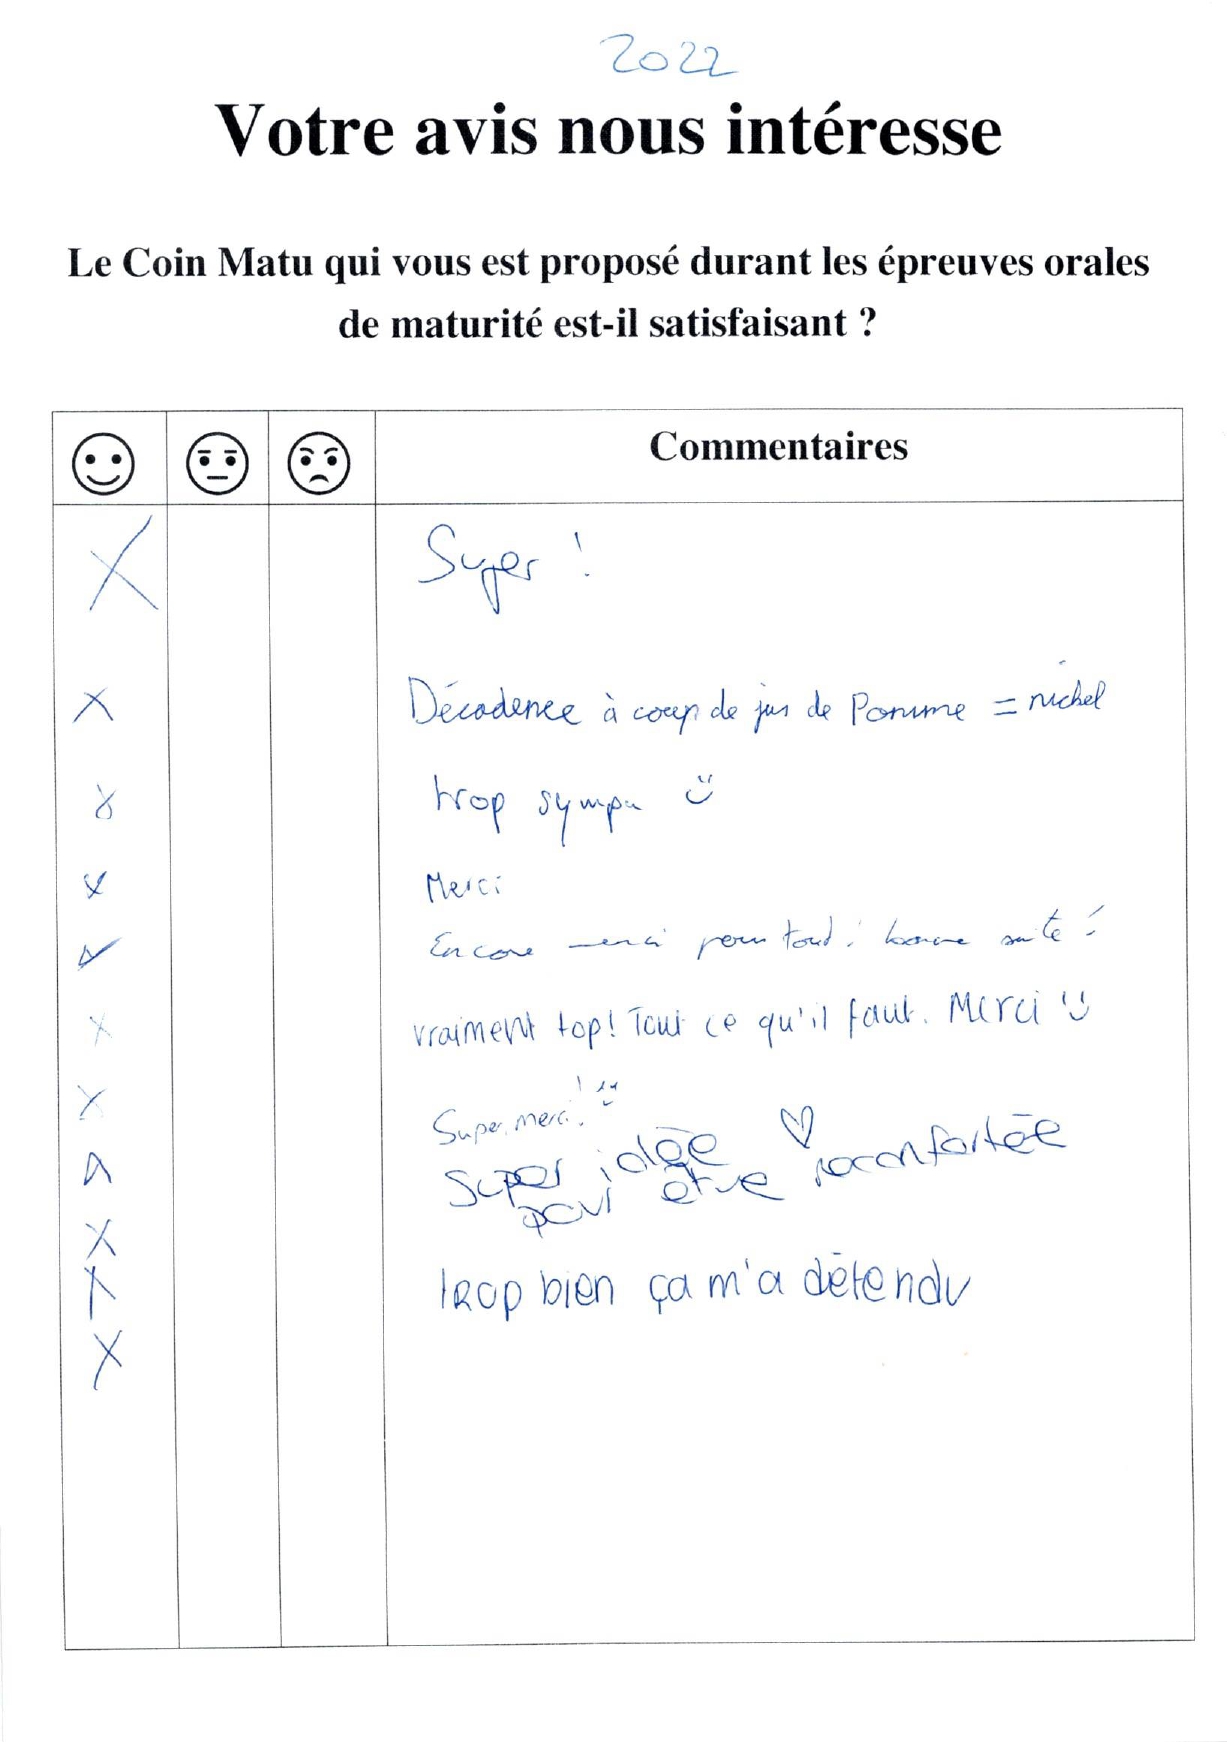 2022
Votre avis nous intéresse
Le Coin Matu qui vous est proposé durant les épreuves orales
de maturité est-il satisfaisant ?
Commentaires
Super !
Décadence à coup de jus de Pomme = nickel
trop sympa
Merci
Encore merci pour tout ! bonne suite !
vraiment top! Tout ce qu'il faut. Merci
Super, merci !
Super idée
pour être réconfortée
Trop bien ça m'a détendu